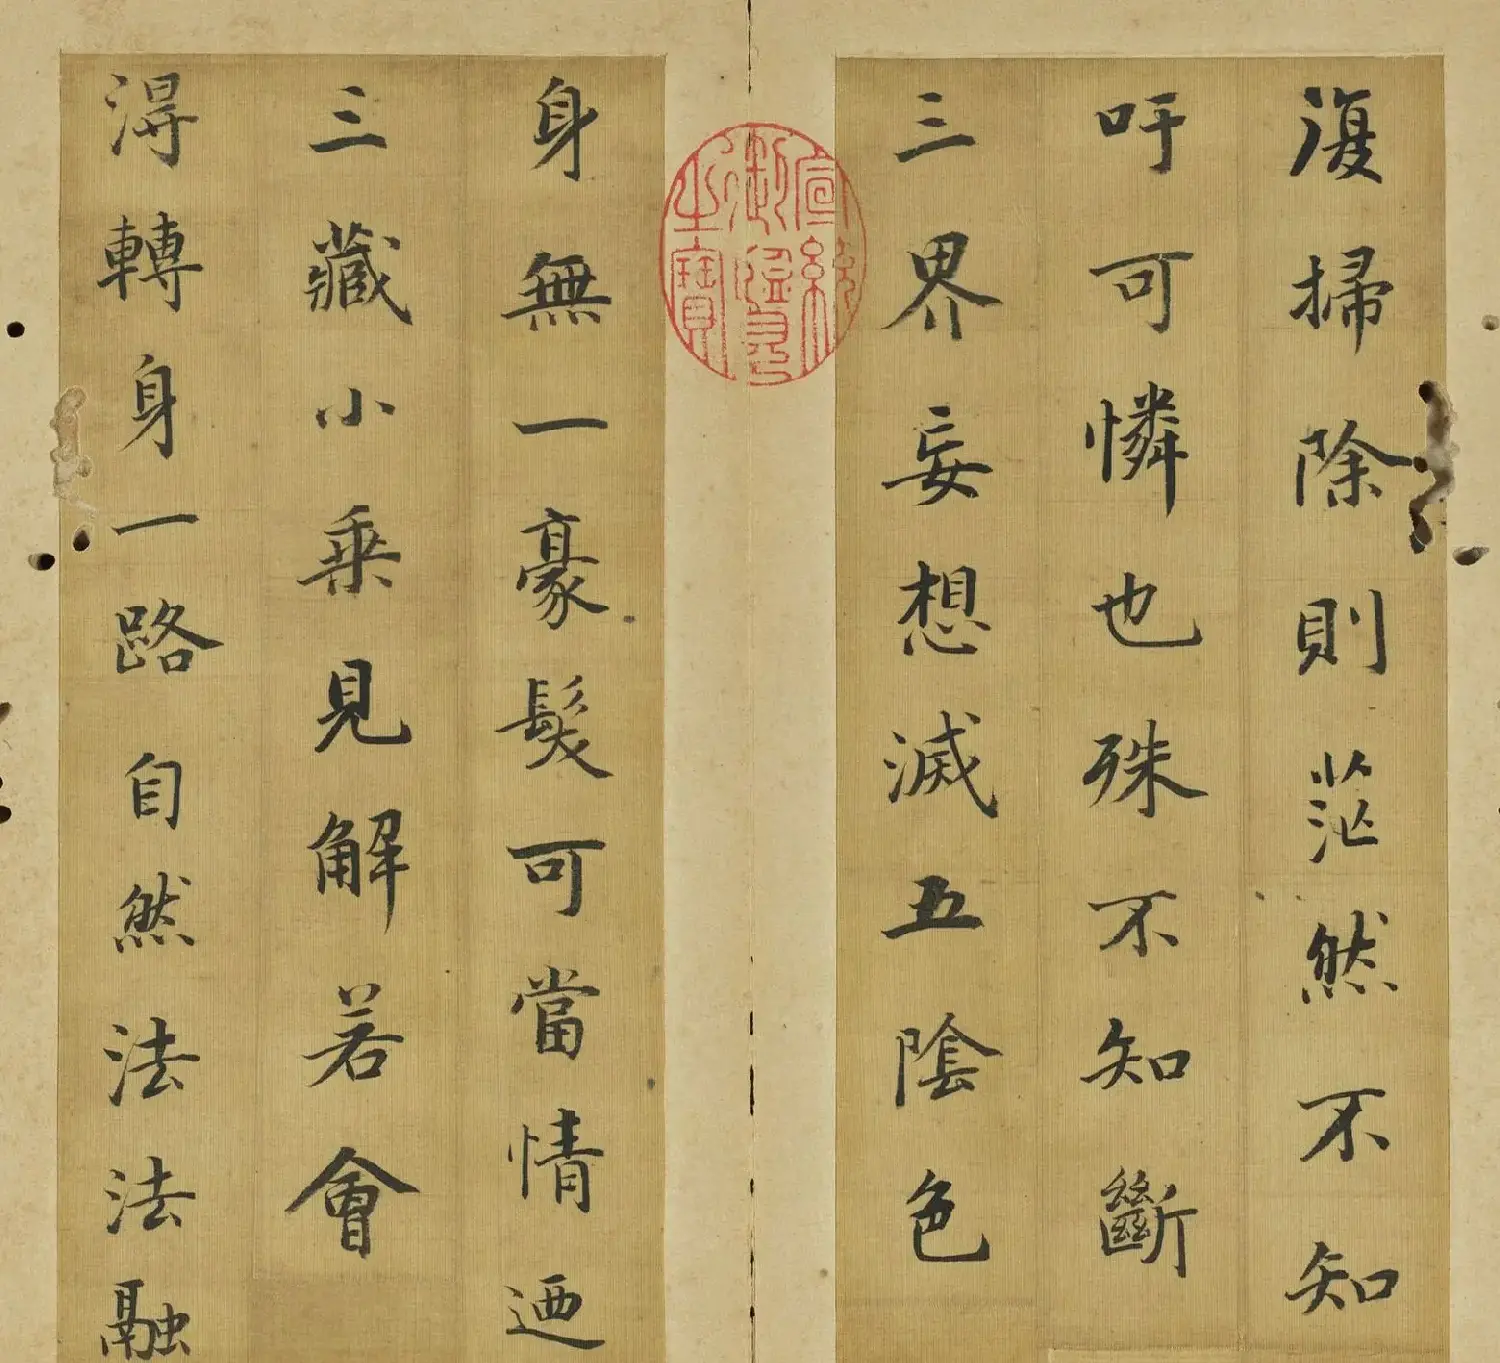 復掃除則茫然不知
吁可憐也殊不知斷
三界妄想滅五陰色
身無一豪髮可當情迺
三藏小乘見解若會
得轉身一路自然法法融
宣統御覽之寶